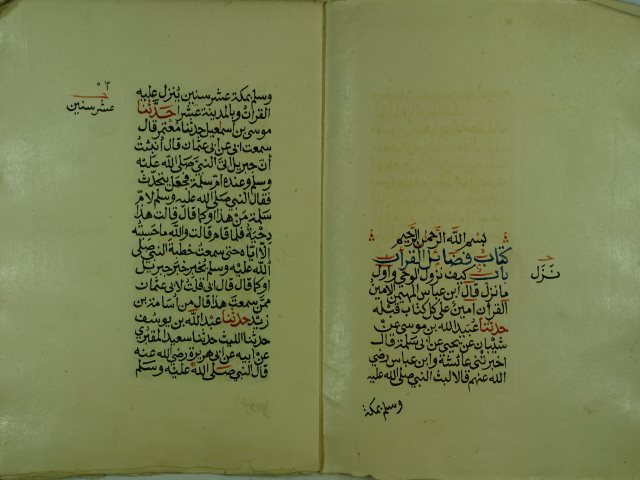 بسم الله الرحمن الرحيم
كتاب فضائل القران
باب كيف نزول الوحي واول
ما نزل قال ابن عباس المهيمن الامين
القران امين على كل كتاب قبله
حدثنا عبيد الله بن موسى عن
شيبان عن يحيى عن ابي سلمة قال
اخبرتني عائشة وابن عباس رضي
الله عنهم قالا لبث النبي صلى الله عليه
وسلم بمكة
نزل
وسلم بمكة عشر سنين ينزل عليه
القران وبالمدينة عشرا حدثنا
موسى بن اسمعيل حدثنا معتمر قال
سمعت ابي عن ابي عثمان قال انبئت
ان جبريل اتى النبي صلى الله عليه
وسلم وعنده ام سلمة فجعل يتحدث
فقال النبي صلى الله عليه وسلم لام
سلمة من هذا او كما قال قالت هذا
دحية فلما قام قالت والله ما حسبته
الا اياه حتى سمعت خطبة النبي صلى
الله عليه وسلم يخبر خبر جبريل
او كما قال قال ابي قلت لابي عثمان
ممن سمعت هذا قال من اسامة بن
زيد حدثنا عبد الله بن يوسف
حدثنا الليث حدثنا سعيد المقبري
عن ابيه عن ابي هريرة رضي الله عنه
قال النبي صلى الله عليه وسلم
عشر سنين